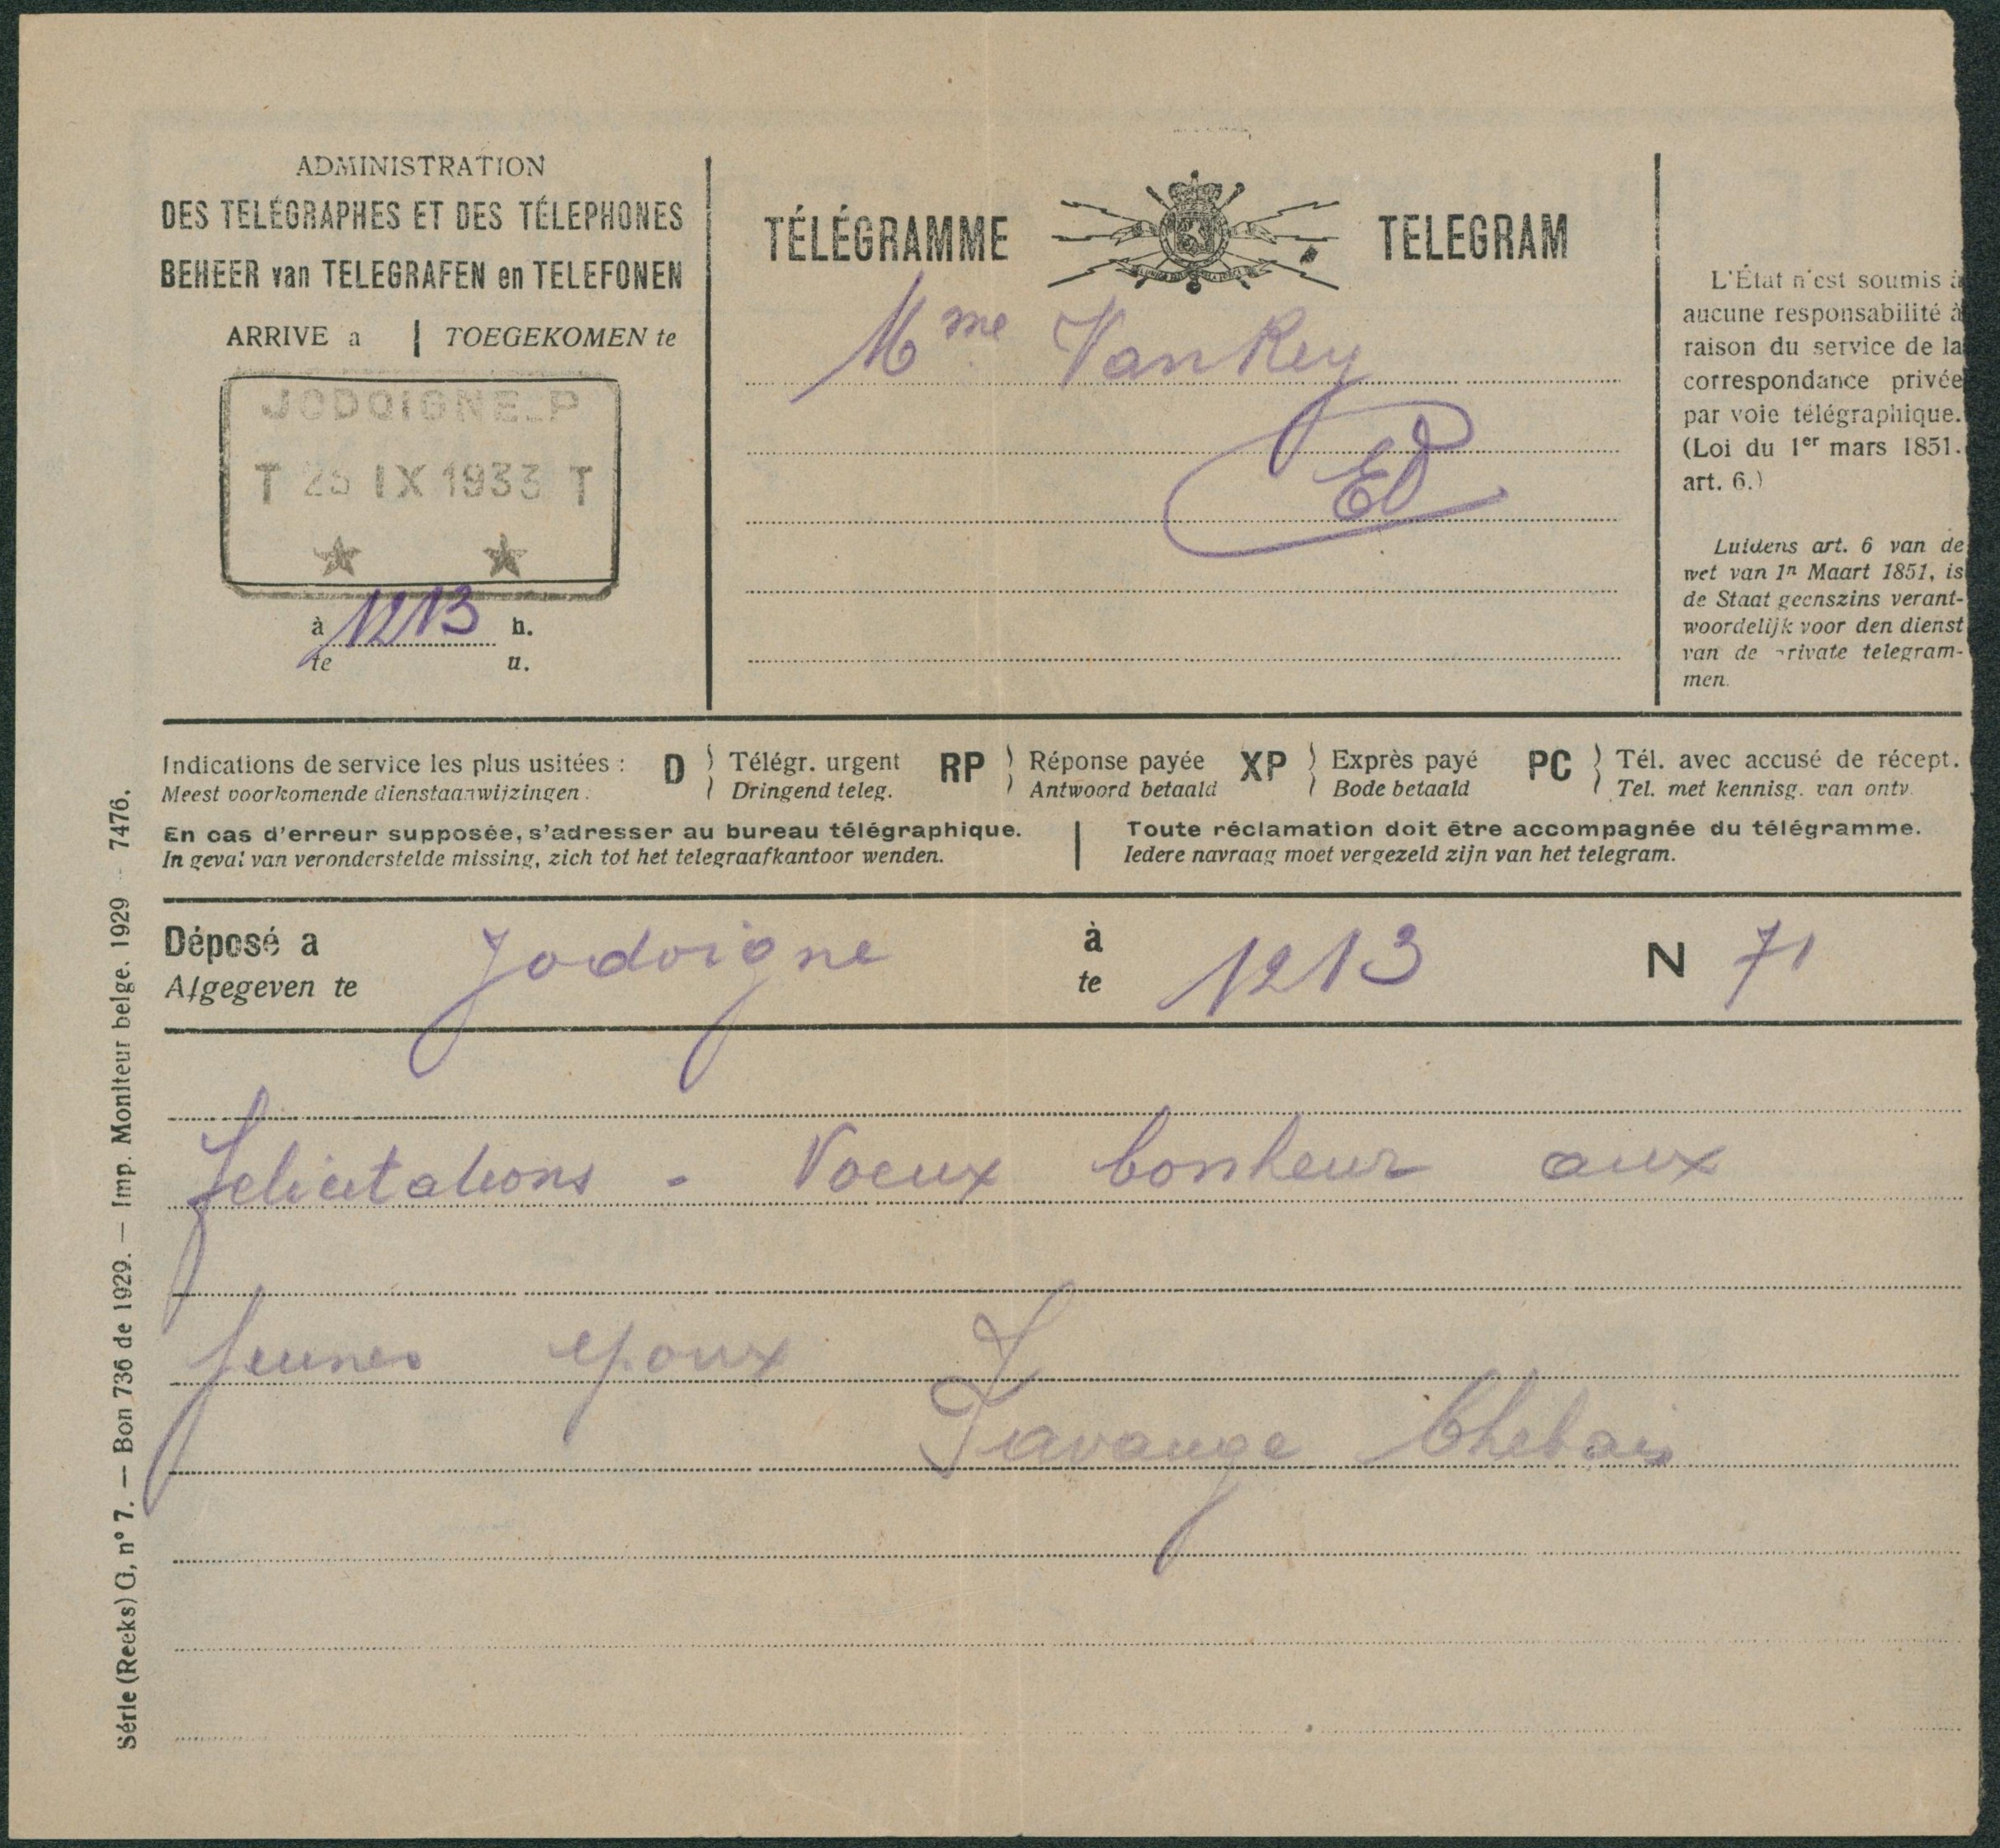 ADMINISTRATION
DES TELÉGRAPHES ET DES TÉLEPHONES
BEHEER van TELEGRAFEN en TELEFONEN
ARRIVE a | TOEGEKOMEN te
JODOIGNE_P
T 25 IX 1933 T
à 1213 h.
te u.
TÉLÉGRAMME TELEGRAM
Mme VanRey
L'État n'est soumis à
aucune responsabilité à
raison du service de la
correspondance privée
par voie télégraphique.
(Loi du 1er mars 1851.
art. 6.)
Luidens art. 6 van de
wet van 1n Maart 1851, is
de Staat geenszins verant-
woordelijk voor den dienst
van de private telegram-
men.
Indications de service les plus usitées : D Télégr. urgent RP Réponse payée XP Exprès payé PC Tél. avec accusé de récept.
Meest voorkomende dienstaanwijzingen. Dringend teleg. Antwoord betaald Bode betaald Tel. met kennisg. van ontv.
En cas d'erreur supposée, s'adresser au bureau télégraphique. | Toute réclamation doit être accompagnée du télégramme.
In geval van veronderstelde missing, zich tot het telegraafkantoor wenden. Iedere navraag moet vergezeld zijn van het telegram.
Déposé a Jodoigne à 1213 N 71
Afgegeven te te
felicitations - Voeux bonheur aux
jeunes epoux
Série (Reeks) G, n° 7. — Bon 736 de 1929. — Imp. Moniteur belge. 1929 - 7476.